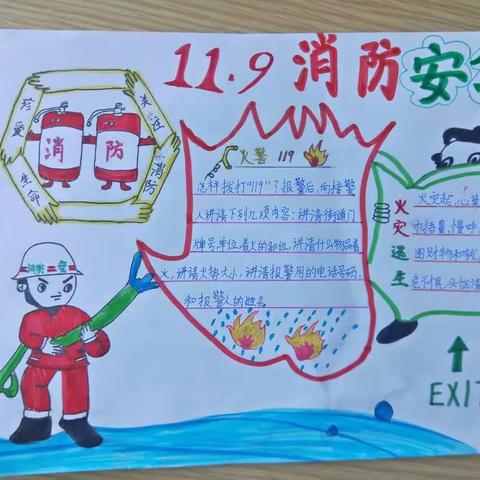 11.9 消防安全
珍爱
生命
关注
消防
消 防
火警 119
怎样拨打"119"了报警后,向接警
人讲清下列几项内容:讲清街道门
牌号单位,着火的部位,讲清什么物品着
火,讲清火势大小,讲清报警用的电话号码,
和报警人的姓名
火灾逃生
火灾起,心
巾捂鼻,慢
困财物和
危不惧,又
消防 安
EXIT